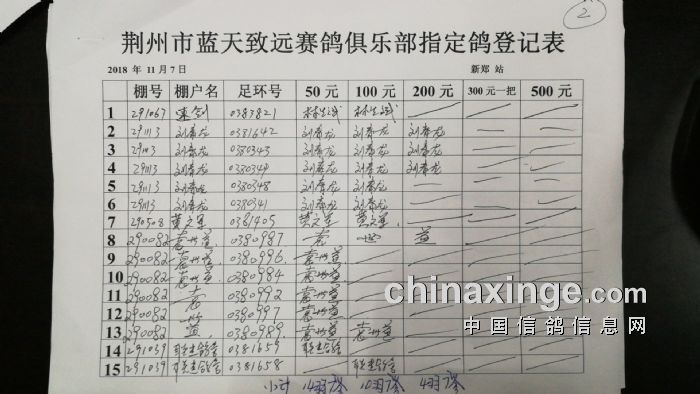 2
荆州市蓝天致远赛鸽俱乐部指定鸽登记表
2018 年 11 月 7 日 新郑 站
棚号 棚户名 足环号 50 元 100 元 200 元 300 元一把 500 元
1 291067 0383821
2 291113 刘春龙 0381642 刘春龙 刘春龙 刘春龙
3 291113 刘春龙 0380343 刘春龙 刘春龙 刘春龙
4 291113 刘春龙 0380349 刘春龙 刘春龙 刘春龙
5 291113 刘春龙 0380348 刘春龙 刘春龙
6 291113 刘春龙 0380341 刘春龙 刘春龙
7 290508 黄文军 0381405 黄文军 黄文军
8 290082 袁世益 0380987 袁 世 益
9 290082 袁世益 0380996 袁世益
10 290082 袁世益 0380984 袁世益
11 290082 袁 0380992 袁世益
12 290082 世 0380997 袁世益
13 290082 益 0380989 袁世益 袁世益
14 291039 0381659
15 291039 0381658
小计 14羽 10羽 4羽
chinaxinge.com
中国信鸽信息网